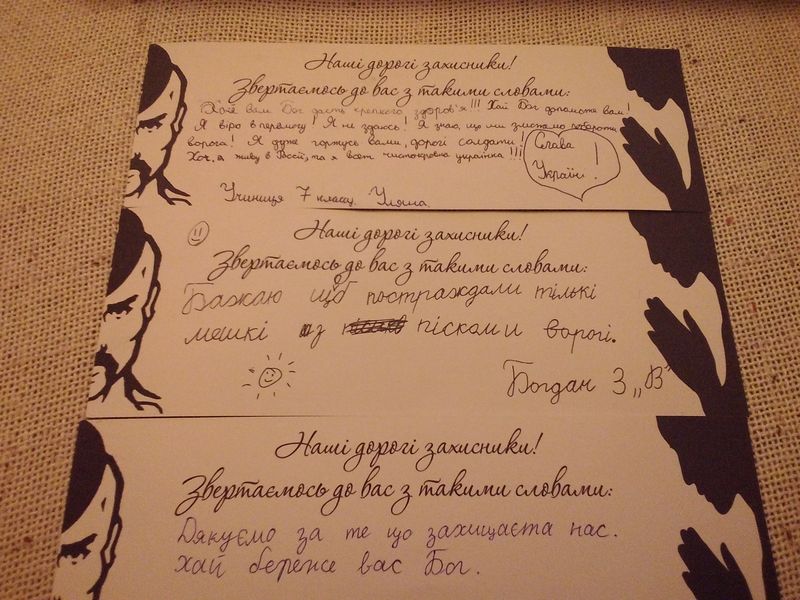 Наші дорогі захисники!
Звертаємось до вас з такими словами:
Хай вам Бог дасть крепкого здоров'я!!! Хай Бог допоможе вам!
Я вірю в перемогу! Я не здаюсь! Я знаю, що ми зможемо побороти
ворога! Я дуже горжусь вами, дорогі солдати!
Хоч, я живу в Росії, та я чистокровна українка!!!
Слава
Україні!
Учиниця 7 классу. Уляна.
Наші дорогі захисники!
Звертаємось до вас з такими словами:
Бажаю щоб постраждали тількі
мешкі з піском и ворогі.
Богдан 3 „В"
Наші дорогі захисники!
Звертаємось до вас з такими словами:
Дякуємо за те що захищаєта нас.
хай береже вас Бог.